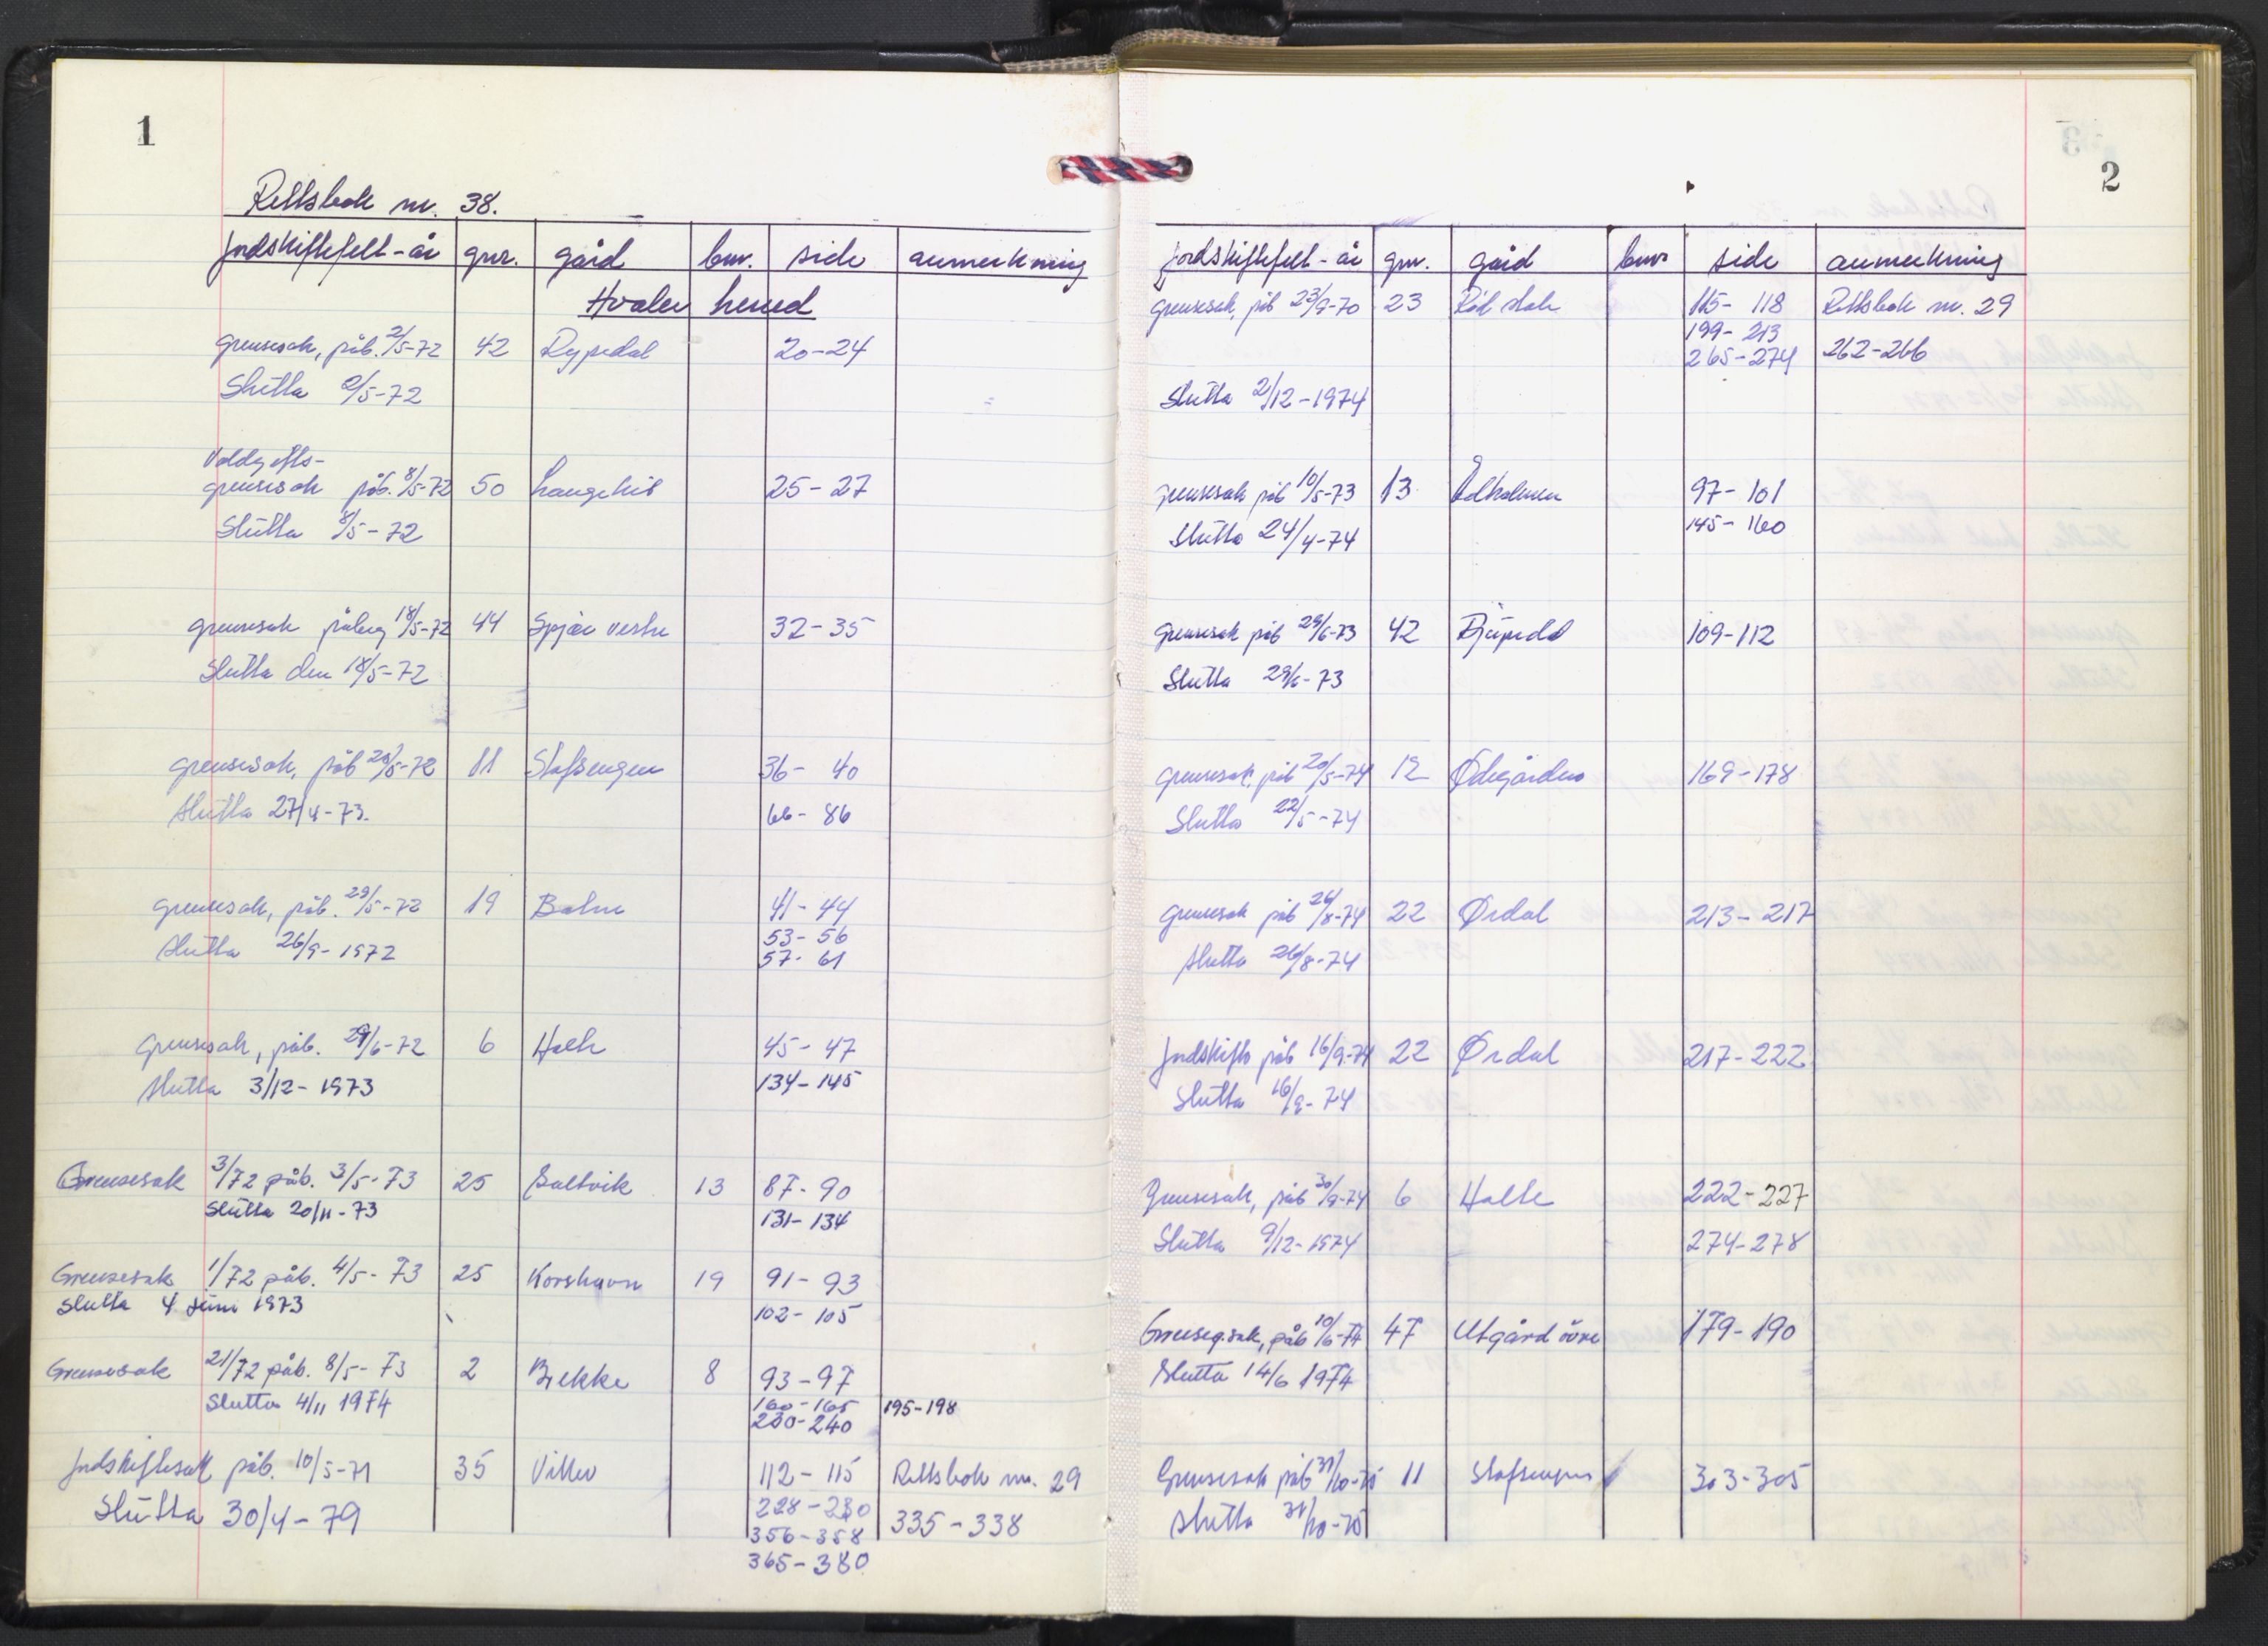 1
Rettsbok nr. 38.
Jordskiftefelt-år gnr. gård bnr. side anmerkning
Hvaler herred
grensesak, påb. 2/5-72 42 Rypedal 20-24
Slutta 2/5-72
Voldgifts-
grensesak påb. 8/5-72 50 25-27
Slutta 8/5-72
grensesak påbeg 18/5-72 44 Spjær vestre 32-35
Slutta den 18/5-72
grensesak, påb 26/5-72 11 Stafsengen 36- 40
Slutta 27/4-73. 66- 86
grensesak, påb. 29/5-72 19 Bølne 41-44
Slutta 26/9-1972 53-56
57-61
grensesak, påb. 29/6-72 6 45-47
Slutta 3/12-1973 134-145
Grensesak 3/72 påb. 3/5-73 25 Saltvik 13 87-90
Slutta 20/11-73 131-134
Grensesak 1/72 påb. 4/5-73 25 Korshavn 19 91-93
Slutta 4 juni 1973 102-105
Grensesak 21/72 påb. 8/5-73 2 Brekke 8 93-97
Slutta 4/11 1974 160-165 195-198
230-240
Jordskiftesak påb. 10/5-71 35 Viker 112-115 Rettsbok nr. 29
Slutta 30/4-79 228-230 335-338
356-358
365-380
2
Jordskiftefelt-år gnr. gård bnr side anmerkning
grensesak, påb 23/9-70 23 Rød 115-118 Rettsbok nr. 29
199-213
265-274 262-266
Slutta 2/12-1974
grensesak påb 10/5-73 13 Edholmen 97-101
Slutta 24/4-74 145-160
grensesak påb 29/6-73 42 109-112
Slutta 29/6-73
grensesak, påb 20/5-74 12 Ødegården 169-178
Slutta 22/5-74
grensesak påb 26/8-74 22 Ørdal 213-217
Slutta 26/8-74
Jordskifte påb 16/9-74 22 Ørdal 217-222
Slutta 16/9-74
Grensesak, påb 30/9-74 6 Halle 222-227
Slutta 9/12-1974 274-278
Grenseg.sak, påb 10/6-74 47 Utgård övre 179-190
Slutta 14/6 1974
Grensesak påb 31/10-75 11 Stafsengen 303-305
Slutta 31/10-75